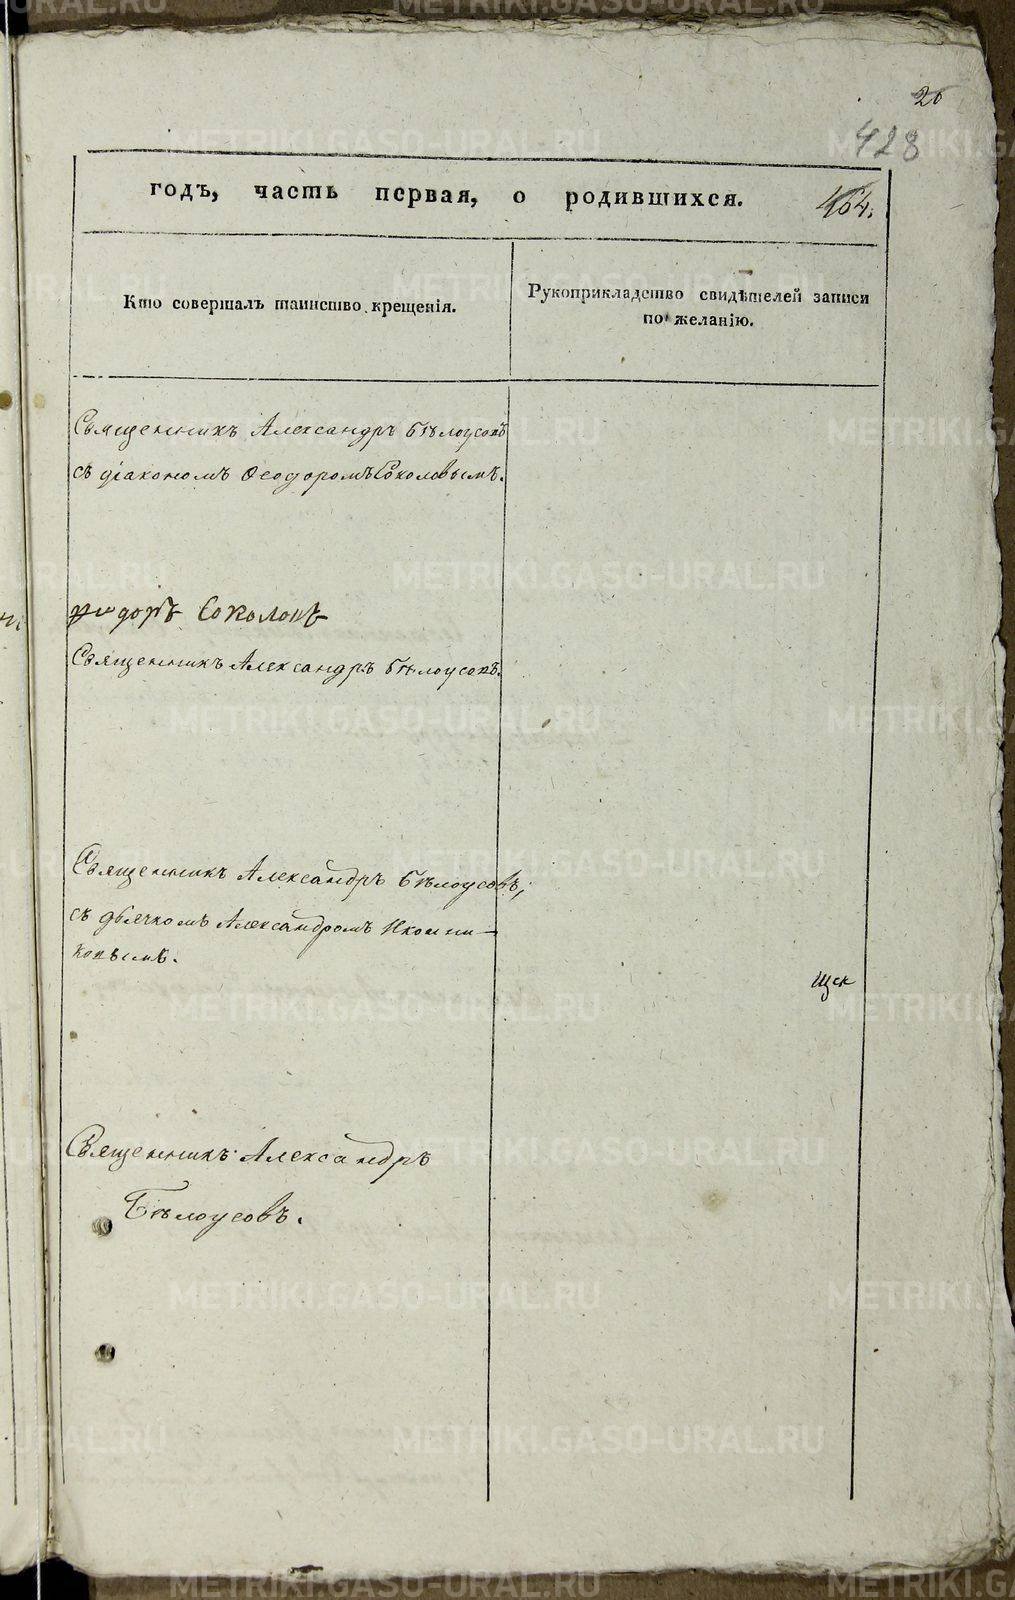 20
428
годъ, часть первая, о родившихся. 464.
Кто совершалъ таинство крещенія.
Рукоприкладство свидѣтелей записи
по желанію.
Священникъ Александръ Бѣлоусовъ
съ діакономъ Ѳеодоромъ Соколовымъ.
Соколовъ
Священникъ Александръ Бѣлоусовъ.
Священникъ Александръ Бѣлоусовъ,
съ дьячкомъ Александромъ Иконни-
ковымъ.
щск
Священникъ Александръ
Бѣлоусовъ.
METRIKI.GASO-URAL.RU